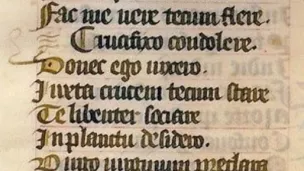 Fac me vere tecum flere.
Crucifixo condolere.
Donec ego vixero.
Iuxta crucem tecum stare
Te libenter sociare
In planctu desidero.
Virgo virginum preclara